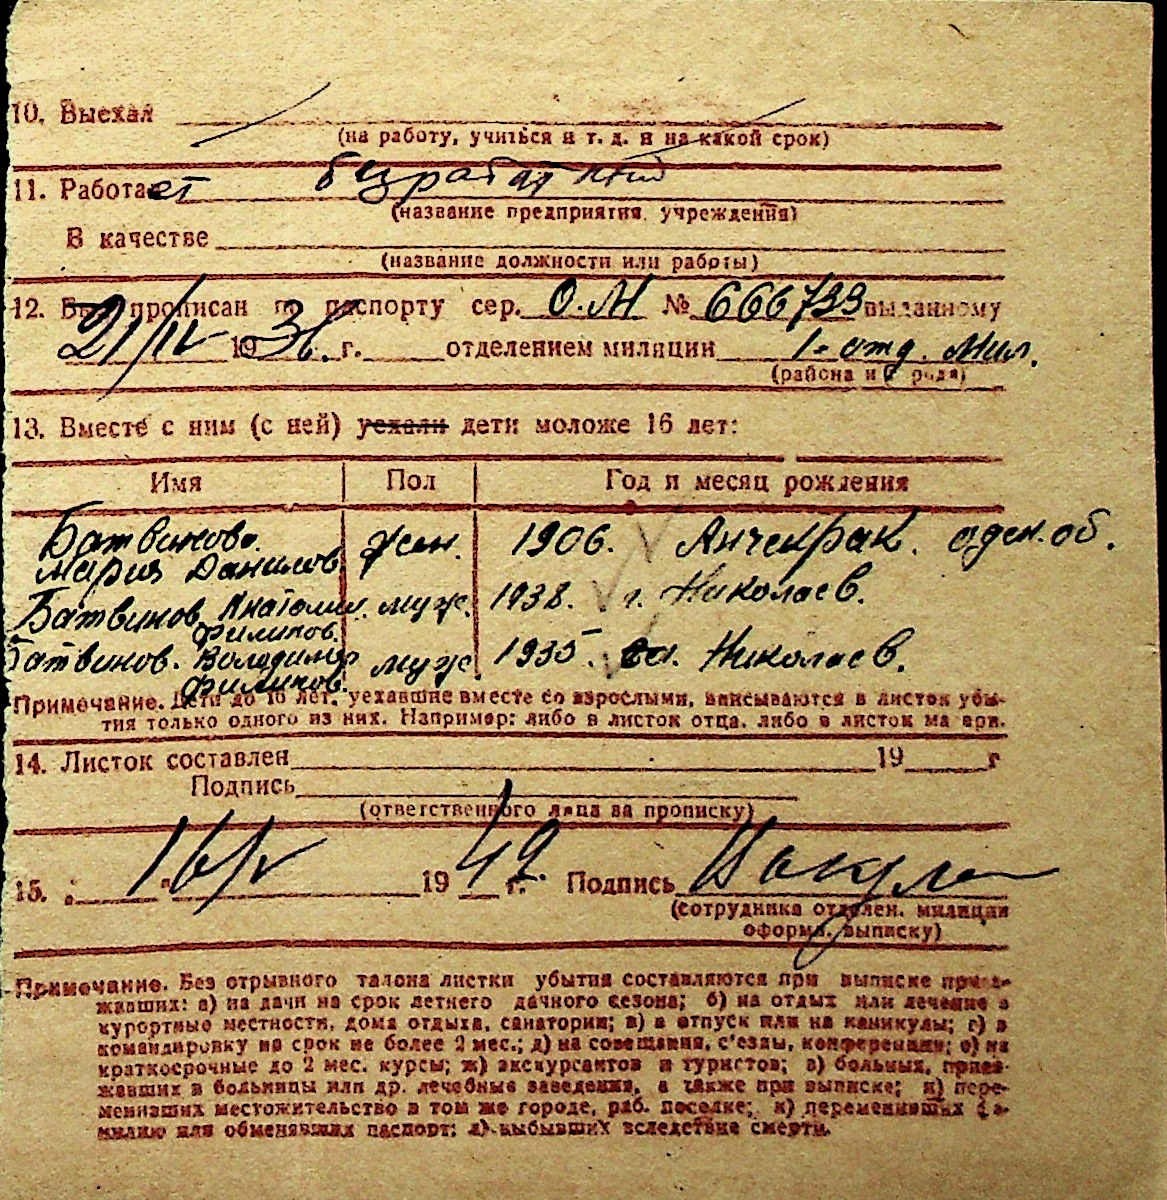 10. Выехал
(на работу, учиться и т. д. и на какой срок)
11. Работает безработный
(название предприятия, учреждения)
В качестве
(название должности или работы)
12. Был прописан по паспорту сер. О.М № 666733 выданному
21/IV 1936. г. отделением милиции 1-отд. Мил.
(района и города)
13. Вместе с ним (с ней) уехали дети моложе 16 лет:
Имя Пол Год и месяц рождения
Батвинова. жен. 1906. Анчекрак. оден. об.
Мария Данилов.
Батвинов Анатоли. муж. 1938. г. Николаев.
Филипов.
Батвинов. Володимир муж 1935. Николаев.
Филипов.
Примечание. Дети до 16 лет, уехавшие вместе со взрослыми, вписываются в листок убы-
тия только одного из них. Например: либо в листок отца, либо в листок матери.
14. Листок составлен 19 г
Подпись
(ответственного лица за прописку)
15. 16/V 1942 г. Подпись
(сотрудника отделен. милиции
оформ. выписку)
Примечание. Без отрывного талона листки убытия составляются при выписке приез-
жавших: а) на дачи на срок летнего дачного сезона; б) на отдых или лечение в
курортные местности, дома отдыха, санатории; в) в отпуск или на каникулы; г) в
командировку на срок не более 2 мес.; д) на совещания, с'езды, конференции; е) на
краткосрочные до 2 мес. курсы; ж) экскурсантов и туристов; з) больных, приез-
жавших в больницы или др. лечебные заведения, а также при выписке; и) пере-
менивших местожительство в том же городе, раб. поселке; к) переменивших фа-
милию или обменявших паспорт; л) выбывших вследствие смерти.